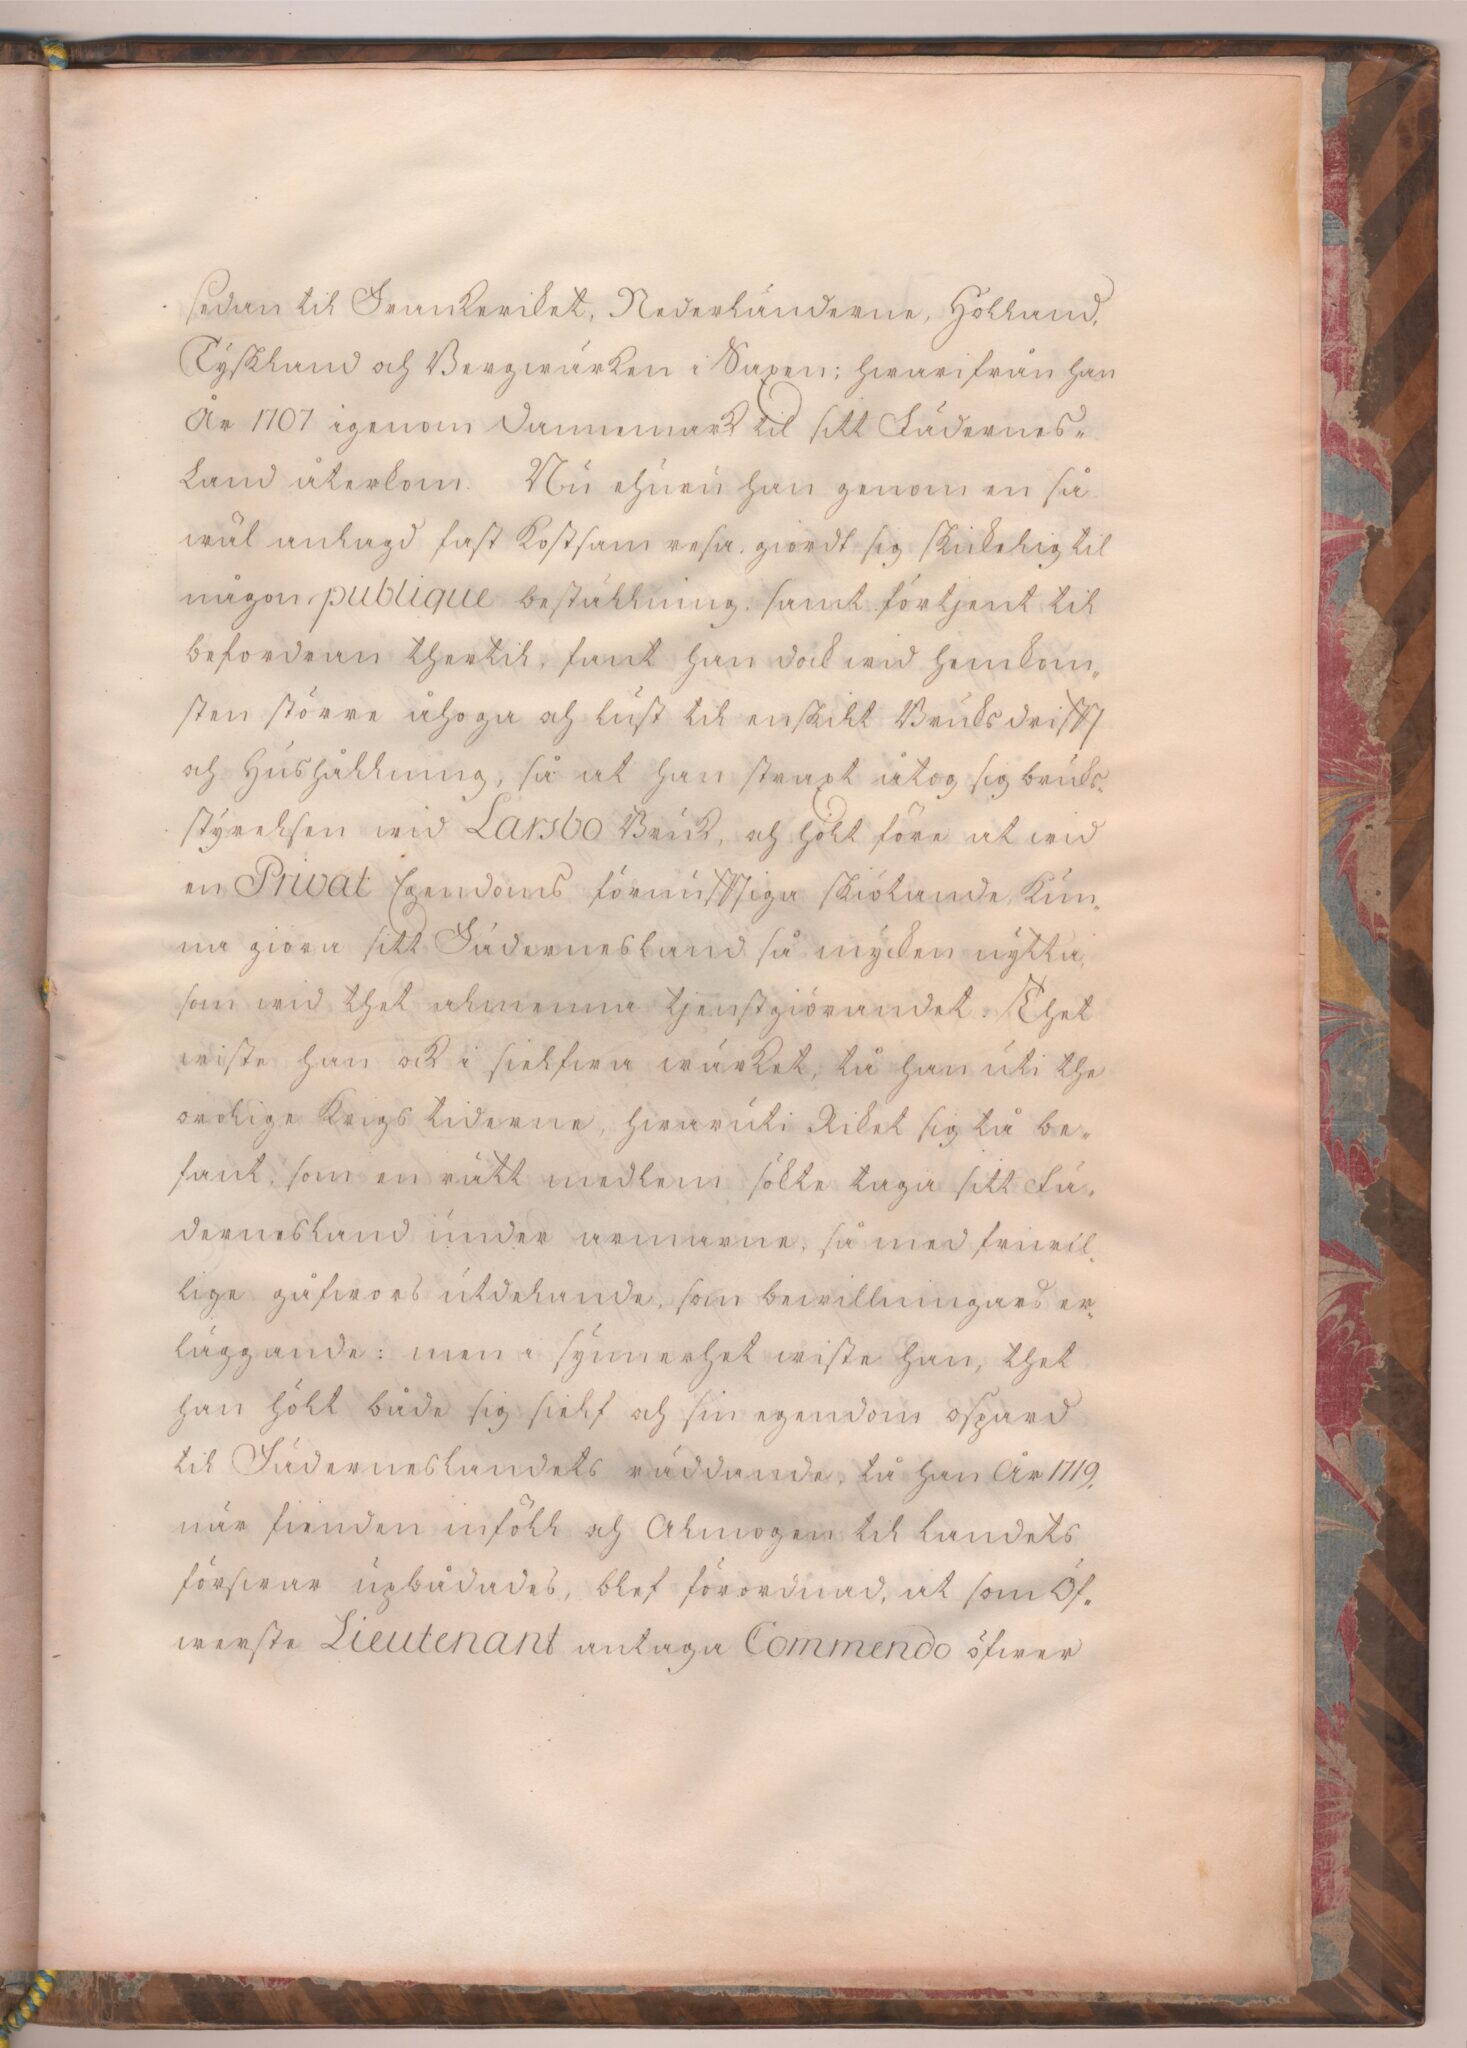 sedan til Frankeriket, Nederländerne, Holland,
Tyskland och Bergwärken i Saxen; hwarifrån han
År 1707 igenom Dannemark til sitt Fädernes-
Land återkom. Nu ehuru han genom en så
wäl anlagd fast kostsam resa, giordt sig skickelig til
någon publique beställning, samt förtjent til
befordran thertil, fant han dock wid hemkom-
sten större åhoga och lust til enskilt Bruksdrifft
och Hushållning, så at han straxt åtog sig bruks-
styrelsen wid Larsbo Bruk, och hölt före at wid
en Privat Egendoms förnufftiga skiötande, kun-
na giora sitt Fädernesland så mycken nytta,
som wid thet almenna tjenstgiörandet. Thet
wiste han ock i sielfwa wärket, tå han uti the
orolige Krigstiderne, hwaruti Riket sig tå be-
fant, som en rätt medlem sökte taga sitt Fä-
dernesland under armarne, så med friwil-
lige gåfwors utdelande, som bewillningars er-
läggande: men i synnerhet wiste han, thet
han hölt både sig sielf och sin egendom ospard
til Fäderneslandets räddande, tå han År 1719,
när fienden inföll och Almogen til landets
förswar upbådades, blef förordnad, at som Öf-
werste Lieutenant antaga Commendo öfwer